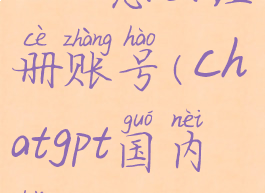 cè zhàng hào
册账号(ch
guó nèi
atgpt国内